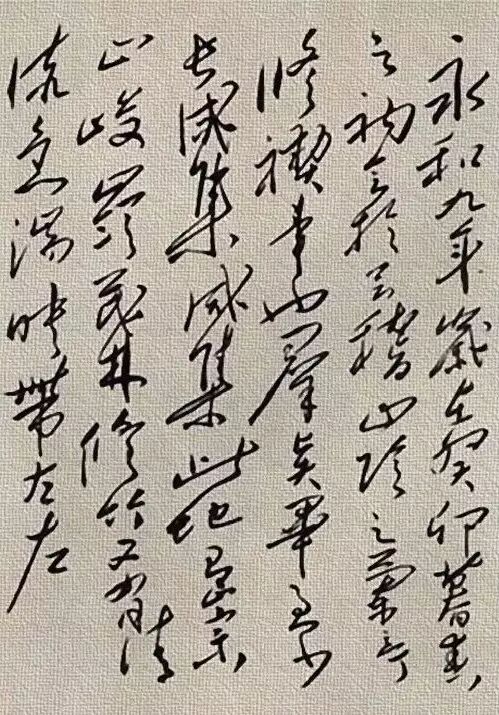 永和九年歲在癸卯暮春
之初會於會稽山陰之蘭亭
修禊事也羣賢畢至少
長咸集咸集此地崇
山峻嶺茂林修竹又有清
流急湍映帶左左